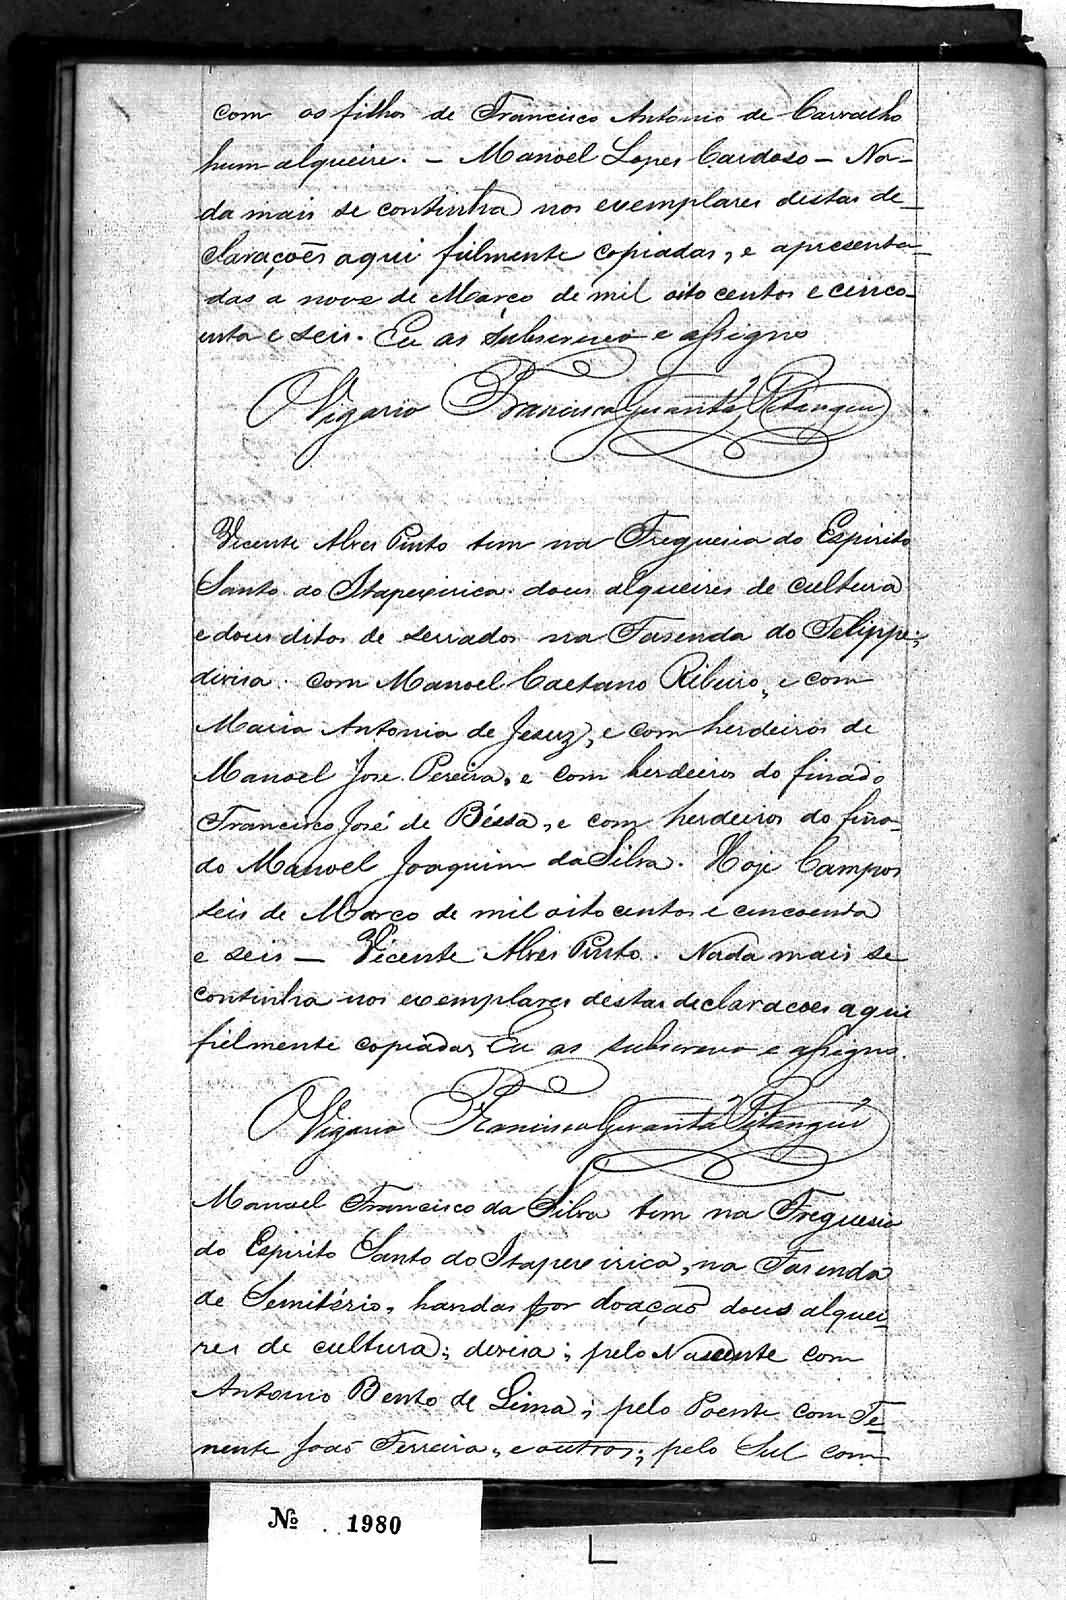 com os filhos de Francisco Antonio de Carvalho
hum alqueire. - Manoel Lopes Cardoso - Na-
da mais se continha nos exemplares destas de-
claraçoẽs aqui fielmente copiadas, e apresenta-
das a nove de Março de mil oito centos e cinco-
enta e seis. Eu as subscrevo e assigno
O Vigario Francisco Guaritá Pitangui
Vicente Alves Pinto tem na Freguesia do Espirito
Santo do Itapexirica dous alqueires de cultura
e dous ditos de serrados na Fasenda do Felippe;
divisa com Manoel Caetano Ribeiro, e com
Maria Antonia de Jesuz, e com herdeiros de
Manoel Jose Pereira, e com herdeiros do finado
Francisco José de Béssa, e com herdeiros do fina-
do Manoel Joaquim da Silva. Hoje Campos
seis de Março de mil oito centos e cincoenta
e seis - Vicente Alves Pinto. Nada mais se
continha nos exemplares destas declaracoes aqui
fielmente copiadas, Eu as subscrevo e assigno.
O Vigario Francisco Guaritá Pitangui
Manoel Francisco da Silva tem na Freguesia
do Espirito Santo do Itapexirica, na Fasenda
de Semitério, handas por doação dous alquei-
res de cultura; devisa; pelo Nascente com
Antonio Bento de Lima; pelo Poente com Te-
nente João Ferreira, e outros; pelo Sul com
Nº 1980